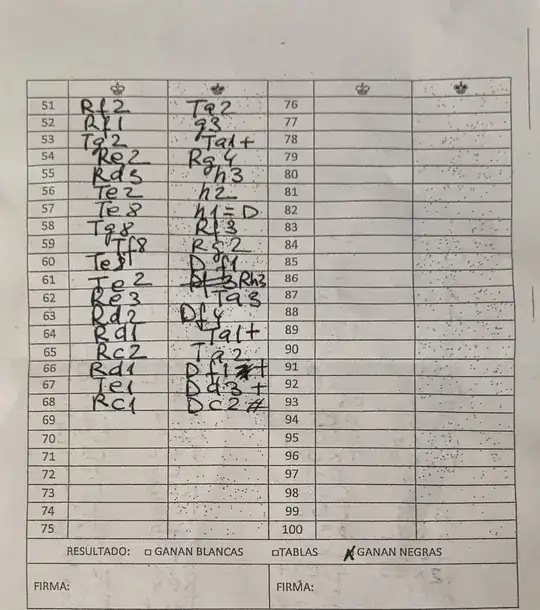 51 Rf2 Ta2 76
52 Rf1 g3 77
53 Tg2 Ta1+ 78
54 Re2 Rg4 79
55 Rd3 h3 80
56 Te2 h2 81
57 Te8 h1=D 82
58 Tg8 Rf3 83
59 Tf8 Rg2 84
60 Df1 85
61 Te2 Rh3 86
62 Re3 Ta3 87
63 Rd2 Df4 88
64 Rd1 Ta1+ 89
65 Rc2 Ta2 90
66 Rd1 Df1+ 91
67 Te1 Dd3+ 92
68 Rc1 Dc2# 93
69 94
70 95
71 96
72 97
73 98
74 99
75 100
RESULTADO: GANAN BLANCAS TABLAS X GANAN NEGRAS
FIRMA: FIRMA: